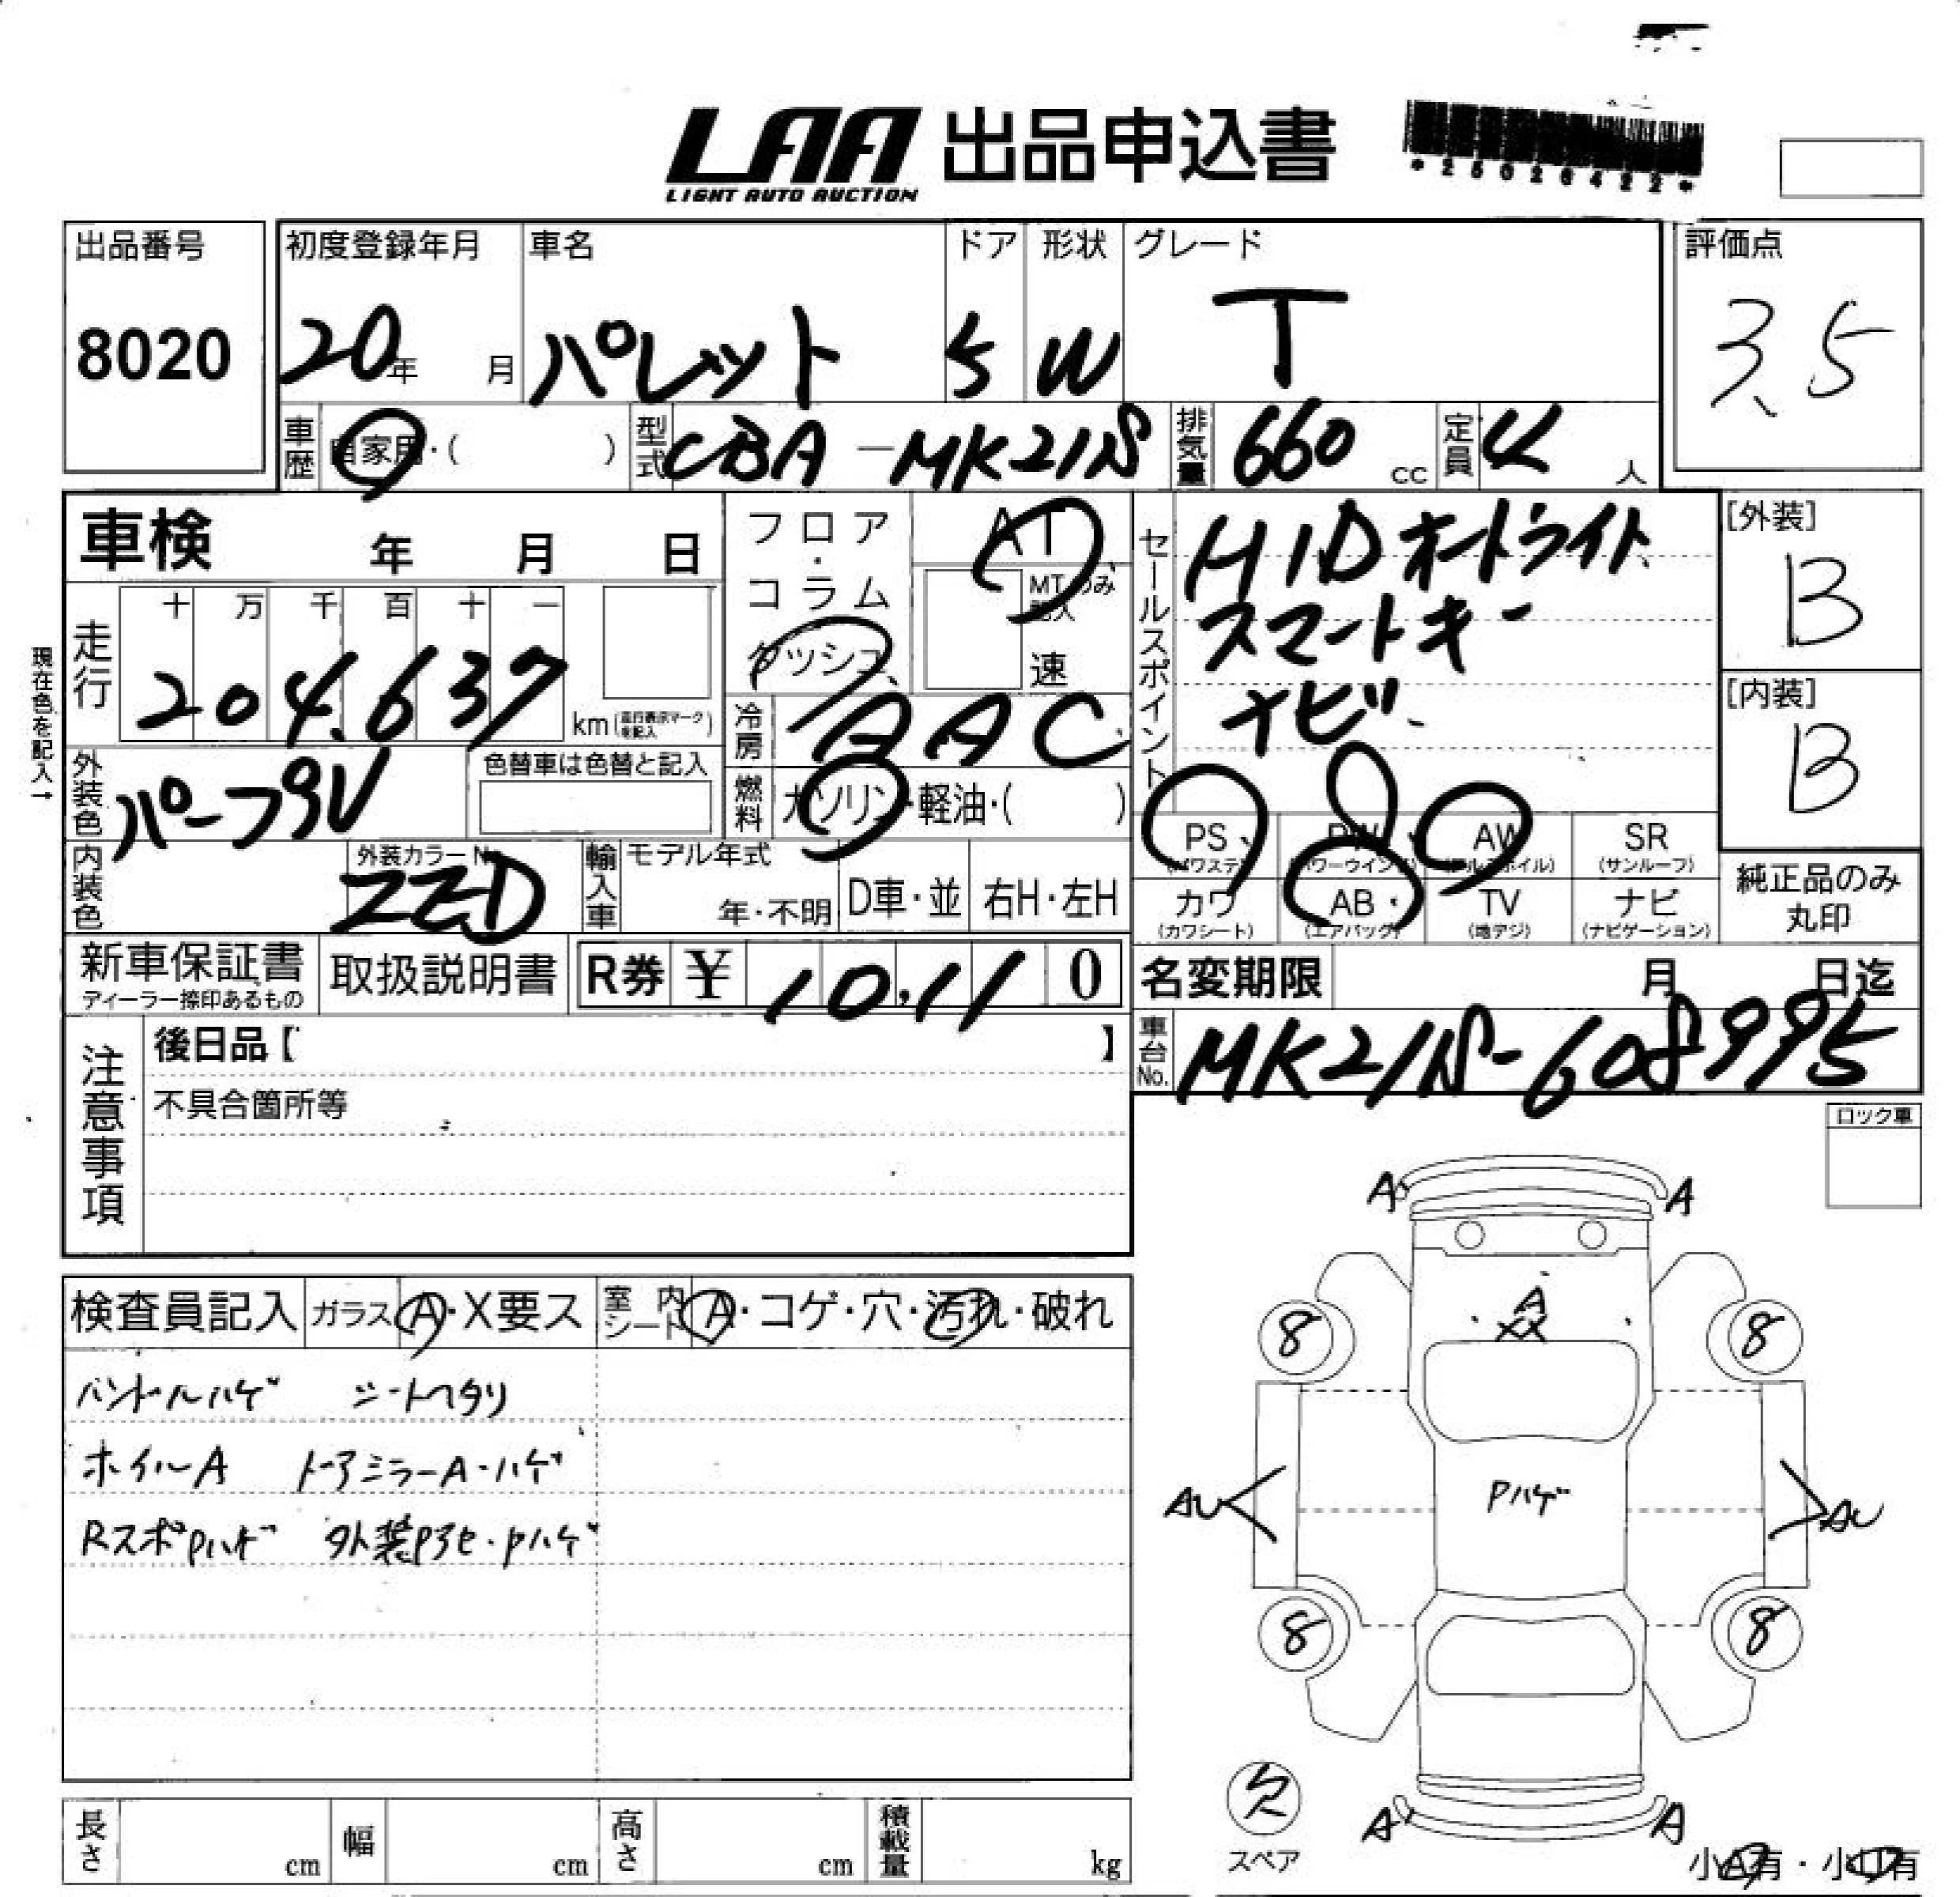 LAA 出品申込書
LIGHT AUTO AUCTION
*25026422*
出品番号 初度登録年月 車名 ドア 形状 グレード 評価点
8020 20年 月 パレット 5 W T 3.5
車歴 自家用・( ) 型式 CBA-MK21S 排気量 660 cc 定員 4 人
車検 年 月 日
フロア・コラム ダッシュ
AT
MTのみ記入
速
セールスポイント
HID オートライト
スマートキー
ナビ
[外装]
B
[内装]
B
現在色を記入→
走行 十 万 千 百 十 一
204,637 km (走行表示マークを記入)
冷房 AAC
外装色 パープルV 色替車は色替と記入
燃料 ガソリン・軽油・( )
内装色 外装カラーNo. ZZD
輸入車 モデル年式 年・不明 D車・並 右H・左H
PS (パワステ) PW (パワーウインド) AW (アルミホイル) SR (サンルーフ)
カワ (カワシート) AB (エアバッグ) TV (地デジ) ナビ (ナビゲーション)
純正品のみ
丸印
新車保証書 取扱説明書 R券 ¥ 10,11 0
ディーラー捺印あるもの
名変期限 月 日迄
車台No. MK21S-608995
注意事項
後日品【 】
不具合箇所等
ロック車
検査員記入 ガラス A・X要ス 室内シート A・コゲ・穴・汚れ・破れ
ハンドルハゲ シートヘタリ
ホイルA ドアミラーA・ハゲ
RスポPハゲ 外装Pヤセ・Pハゲ
A A
A
XX
8 8
Pハゲ
AU AU
8 8
欠
スペア
A A
小A有・小凹有
長さ cm 幅 cm 高さ cm 積載量 kg